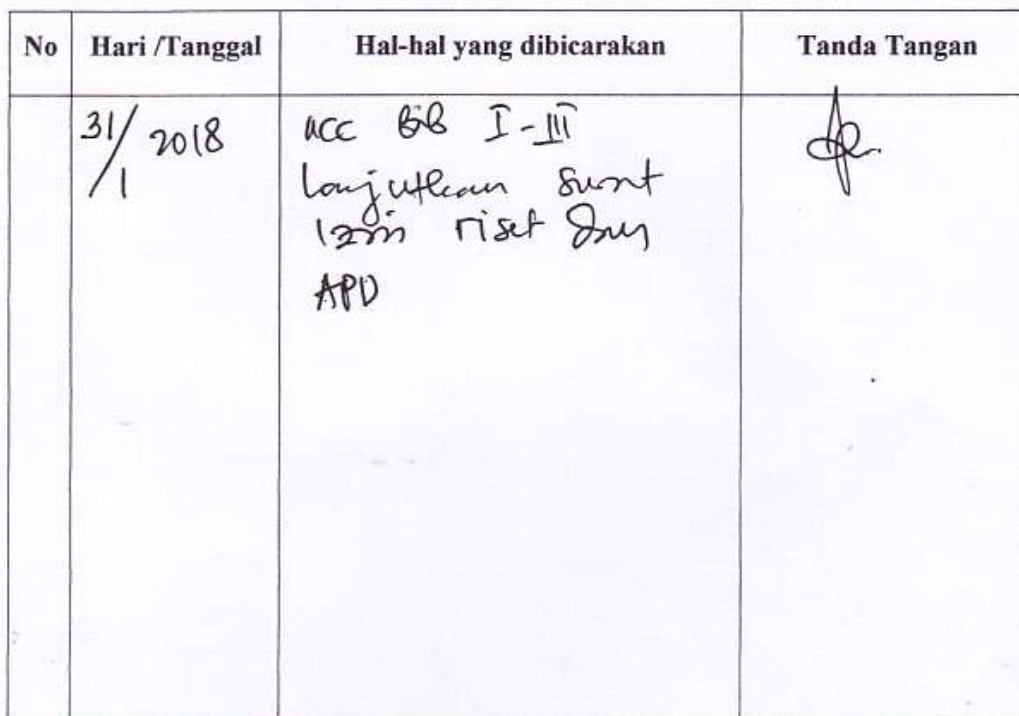 No Hari /Tanggal Hal-hal yang dibicarakan Tanda Tangan
31/1 2018 acc Bab I-III
lanjutkan surat
izin riset dan
APD